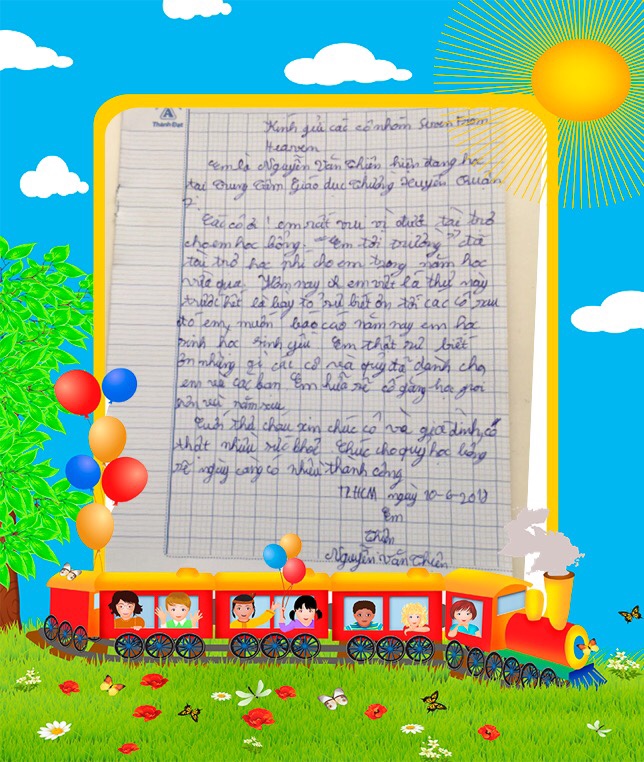 A
Thành Đạt
Kính gửi các cô nhóm Seven From
Heaven
Em là Nguyễn Văn Thiên hiện đang học
tại Trung Tâm Giáo dục Thường Xuyên Quận
7.
Các cô ơi ! em rất vui vì được tài trợ
cho em học bổng. "Em tới trường" đã
tài trợ học phí cho em trong năm học
vừa qua. Hôm nay em viết lá thư này
trước hết là bày tỏ sự biết ơn tới các cô sau
đó em muốn báo cáo năm nay em học
sinh học sinh yếu. Em thật sự biết
ơn những gì các cô và quỹ đã dành cho
em và các bạn. Em hứa sẽ cố gắng học giỏi
hơn vài năm sau
Cuối thư cháu xin chúc cô và gia đình cô
thật nhiều sức khoẻ. Chúc cho quỹ học bổng
sẽ ngày càng có nhiều thành công
TPHCM ngày 10-6-201
Em
Thiên
Nguyễn Văn Thiên